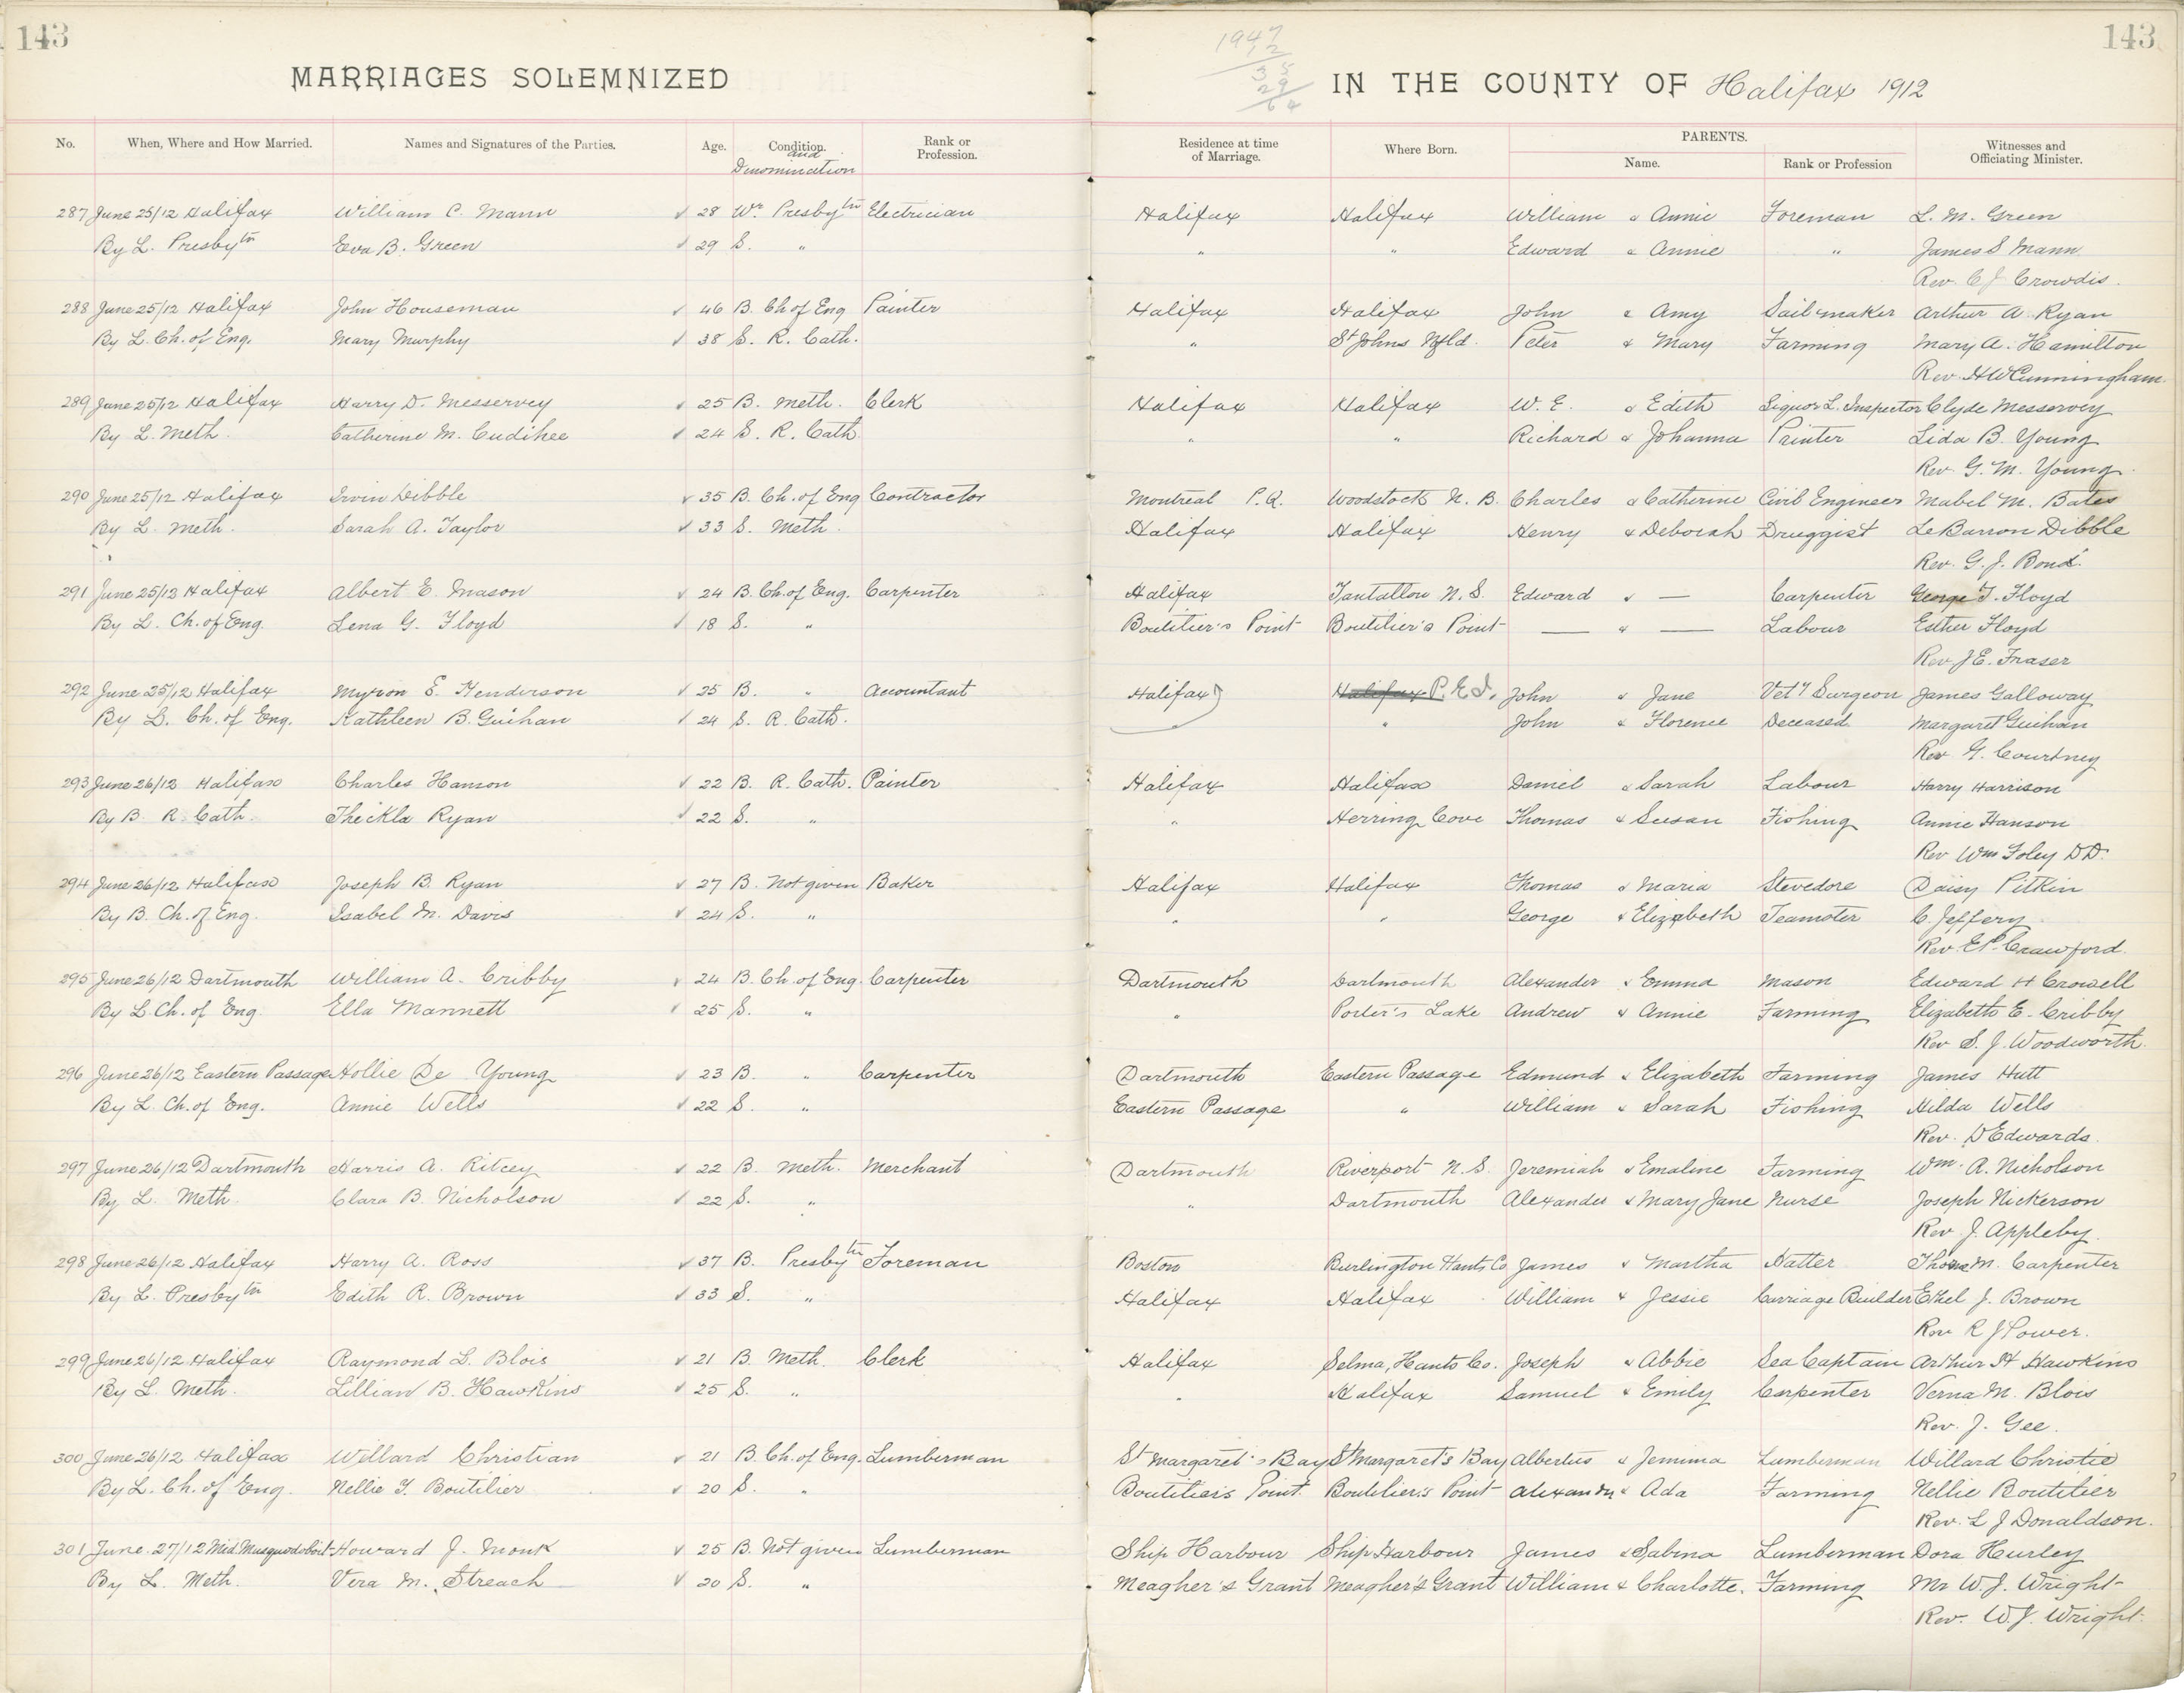 143
MARRIAGES SOLEMNIZED
No. When, Where and How Married. Names and Signatures of the Parties. Age. Condition. and Denomination Rank or Profession.
287 June 25/12 Halifax William C. Mann 28 Wr. Presbytn Electrician
By L. Presbytn Eva B. Green 29 S. "
288 June 25/12 Halifax John Houseman 46 B. Ch of Eng Painter
By L. Ch. of Eng. Mary Murphy 38 S. R. Cath.
289 June 25/12 Halifax Harry D. Messervey 25 B. Meth. Clerk
By L. Meth. Catherine M. Cudihee 24 S. R. Cath
290 June 25/12 Halifax Irvin Dibble 35 B. Ch. of Eng Contractor
By L. Meth. Sarah A. Taylor 33 S. Meth.
291 June 25/12 Halifax Albert E. Mason 24 B. Ch. of Eng. Carpenter
By L. Ch. of Eng. Lena G. Floyd 18 S. "
292 June 25/12 Halifax Myron E. Henderson 25 B. " Accountant
By L. Ch. of Eng. Kathleen B. Guihan 24 S. R. Cath.
293 June 26/12 Halifax Charles Hanson 22 B. R. Cath. Painter
By B. R. Cath. Theckla Ryan 22 S. "
294 June 26/12 Halifax Joseph B. Ryan 27 B. Not given Baker
By B. Ch. of Eng. Isabel M. Davis 24 S. "
295 June 26/12 Dartmouth William A. Cribby 24 B. Ch of Eng. Carpenter
By L. Ch. of Eng. Ella Mannett 25 S. "
296 June 26/12 Eastern Passage Hollie De Young 23 B. " Carpenter
By L. Ch. of Eng. Annie Wells 22 S. "
297 June 26/12 Dartmouth Harris A. Ritcey 22 B. Meth. Merchant
By L. Meth. Clara B. Nicholson 22 S. "
298 June 26/12 Halifax Harry A. Ross 37 B. Presbytn Foreman
By L. Presbytn Edith R. Brown 33 S. "
299 June 26/12 Halifax Raymond L. Blois 21 B. Meth. Clerk
By L. Meth. Lillian B. Hawkins 25 S. "
300 June 26/12 Halifax Willard Christian 21 B. Ch. of Eng. Lumberman
By L. Ch. of Eng. Nellie Y. Boutilier 20 S. "
301 June 27/12 Mid. Musquodoboit Howard J. Monk 25 B. Not given Lumberman
By L. Meth. Vera M. Streach 20 S. "
143
1947
12
35
29
64
IN THE COUNTY OF Halifax 1912
Residence at time of Marriage. Where Born. PARENTS. Name. Rank or Profession Witnesses and Officiating Minister.
Halifax Halifax William & Annie Foreman L. M. Green
" " Edward & Annie " James S Mann
Rev. C J Crowdis.
Halifax Halifax John & Amy Sailmaker Arthur A Ryan
" St Johns Nfld. Peter & Mary Farming Mary A. Hamilton
Rev. H W Cunningham.
Halifax Halifax W. E. & Edith Liquor L. Inspector Clyde Messervey
" " Richard & Johanna Printer Lida B. Young
Rev. G. M. Young.
Montreal P. Q. Woodstock N. B. Charles & Catherine Civil Engineer Mabel M. Bates
Halifax Halifax Henry & Deborah Druggist LeBarron Dibble
Rev. G. J. Bond.
Halifax Tantallon N. S. Edward & — Carpenter George T. Floyd
Boutilier's Point Boutilier's Point — & — Labour Esther Floyd
Rev J E. Fraser
Halifax Halifax P. E. I. John & Jane Vety Surgeon James Galloway
" John & Florence Deceased Margaret Guihan
Rev G. Courtney
Halifax Halifax Daniel & Sarah Labour Harry Harrison
" Herring Cove Thomas & Susan Fishing Annie Hanson
Rev Wm Foley DD.
Halifax Halifax Thomas & Maria Stevedore Daisy Pitkin
" " George & Elizabeth Teamster C. Jeffery
Rev. E P. Crawford.
Dartmouth Dartmouth Alexander & Emma Mason Edward H Crowell
" Porter's Lake Andrew & Annie Farming Elizabeth E. Cribby
Rev S. J. Woodworth.
Dartmouth Eastern Passage Edmund & Elizabeth Farming James Hutt
Eastern Passage " William & Sarah Fishing Hilda Wells
Rev. D Edwards.
Dartmouth Riverport N. S. Jeremiah & Emaline Farming Wm. A. Nicholson
" Dartmouth Alexander & Mary Jane Nurse Joseph Nickerson
Rev. J. Appleby.
Boston Burlington Hants Co James & Martha Hatter Thomas M. Carpenter
Halifax Halifax William & Jessie Carriage Builder Ethel J. Brown
Rev R J Power.
Halifax Selma, Hants Co. Joseph & Abbie Sea Captain Arthur H Hawkins
" Halifax Samuel & Emily Carpenter Verna M. Blois
Rev. J. Gee.
St Margaret's Bay St Margaret's Bay Albertus & Jemima Lumberman Willard Christie
Boutilier's Point. Boutilier's Point Alexandr & Ada Farming Nellie Boutilier
Rev. L J Donaldson.
Ship Harbour Ship Harbour James & Sabina Lumberman Dora Hurley
Meagher's Grant Meagher's Grant William & Charlotte. Farming Mr W. J. Wright
Rev. W. J. Wright.